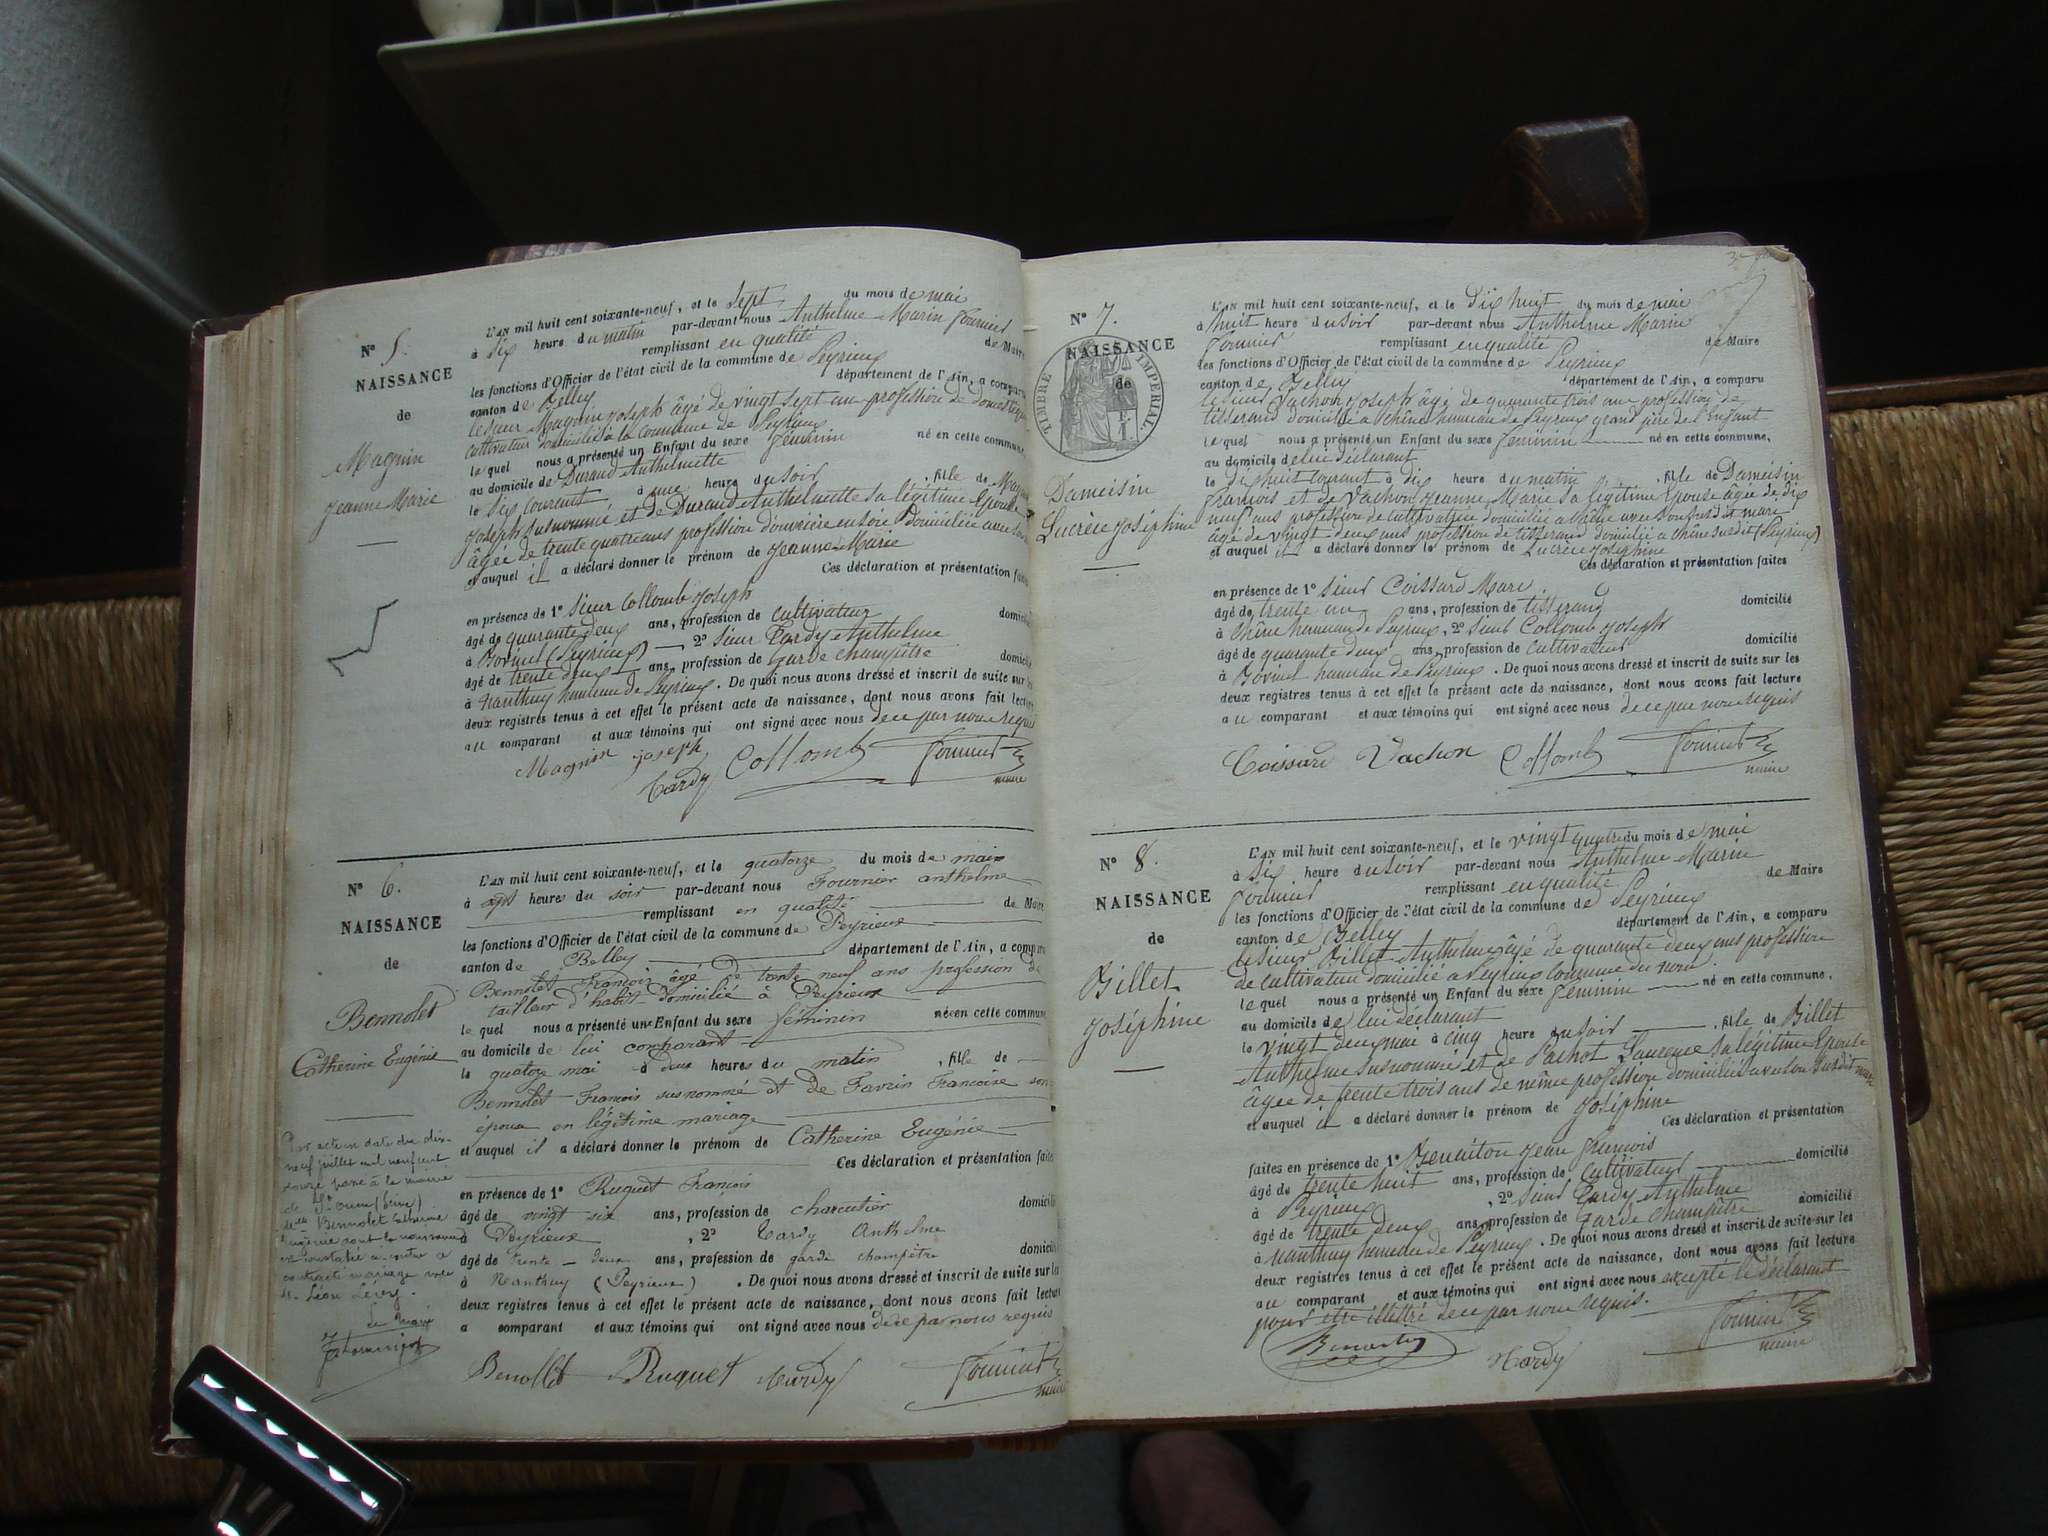 N° 5.
NAISSANCE
de
Magnin
Jeanne Marie
L'AN mil huit cent soixante-neuf, et le Sept du mois de mai
à Dix heure du matin par-devant nous Anthelme Marin Fournier
remplissant en qualité de Maire
les fonctions d'Officier de l'état civil de la commune de Peyrieux
canton de Belley département de l'Ain, a comparu
le sieur Magnin Joseph âgé de vingt sept ans profession de
cultivateur domicilié à la commune de Peyrieux
le quel nous a présenté un Enfant du sexe féminin né en cette commune,
au domicile de Durand Anthelmette
le Six courant à une heure du soir, fille de
Joseph susnommé et de Durand Anthelmette sa légitime Epouse
âgée de trente quatre ans profession d'ouvrière en soie domiciliée avec
et auquel il a déclaré donner le prénom de Jeanne-Marie
Ces déclaration et présentation faites
en présence de 1° Sieur Collomb Joseph
âgé de quarante deux ans, profession de cultivateur domicilié
à Bovinel (Peyrieux), 2° Sieur Tardy Anthelme
âgé de trente deux ans, profession de Garde champêtre domicilié
à Nanthuy hameau de Peyrieux. De quoi nous avons dressé et inscrit de suite sur les
deux registres tenus à cet effet le présent acte de naissance, dont nous avons fait lecture
au comparant et aux témoins qui ont signé avec nous de ce par nous requis
Magnin joseph Collomb Fournier
Tardy maire
N° 6.
NAISSANCE
de
Bennolet
Catherine Eugénie
L'AN mil huit cent soixante-neuf, et le quatorze du mois de mai
à sept heures du soir par-devant nous Fournier anthelme
remplissant en qualité de Maire
les fonctions d'Officier de l'état civil de la commune de Peyrieux
canton de Belley département de l'Ain, a comparu
Bennolet François âgé de trente neuf ans profession de
tailleur d'habit domicilié à Peyrieux
le quel nous a présenté un Enfant du sexe féminin née en cette commune
au domicile de lui comparant
le quatorze mai à deux heures du matin, fille de
Bennolet François susnommé et de Favrin Françoise son
épouse en légitime mariage
et auquel il a déclaré donner le prénom de Catherine Eugénie
Ces déclaration et présentation faites
en présence de 1° Ruquet François
âgé de vingt six ans, profession de charcutier domicilié
à Peyrieux, 2° Tardy Anthelme
âgé de trente-deux ans, profession de garde champêtre domicilié
à Nanthuy (Peyrieux). De quoi nous avons dressé et inscrit de suite sur les
deux registres tenus à cet effet le présent acte de naissance, dont nous avons fait lecture
a comparant et aux témoins qui ont signé avec nous de ce par nous requis
Benollet Ruquet Tardy Fournier
maire
Par acte en date du dix-
neuf juillet mil neuf cent
douze passé à la mairie
de St Ouen (Seine)
Bennolet Catherine
Eugénie dont la naissance
est constatée ci-contre a
contracté mariage avec
Léon
Le Maire
N° 7.
NAISSANCE
de
TIMBRE IMPÉRIAL
Dameisin
Lucrèce Joséphine
L'AN mil huit cent soixante-neuf, et le Dix huit du mois de mai
à huit heure du soir par-devant nous Anthelme Marin
Fournier remplissant en qualité de Maire
les fonctions d'Officier de l'état civil de la commune de Peyrieux
canton de Belley département de l'Ain, a comparu
le sieur Vachon Joseph âgé de quarante trois ans profession de
tisserand domicilié à Chêne hameau de Peyrieux grand père de l'Enfant
le quel nous a présenté un Enfant du sexe féminin né en cette commune,
au domicile de lui déclarant
le dix huit courant à dix heure du matin, fille de Dameisin
François et de Vachon Jeanne Marie sa légitime Epouse âgée de dix
neuf ans profession de cultivatrice domiciliée a Chêne avec son susdit mari
âgé de vingt deux ans profession de tisserand domicilié a Chêne susdit (Peyrieux)
et auquel il a déclaré donner le prénom de Lucrèce Joséphine
Ces déclaration et présentation faites
en présence de 1° Sieur Coissard Marc
âgé de trente un ans, profession de tisserand domicilié
à Chêne hameau de Peyrieux, 2° Sieur Collomb Joseph
âgé de quarante deux ans, profession de cultivateur domicilié
à Bovinel hameau de Peyrieux. De quoi nous avons dressé et inscrit de suite sur les
deux registres tenus à cet effet le présent acte de naissance, dont nous avons fait lecture
au comparant et aux témoins qui ont signé avec nous de ce par nous requis
Coissard Vachon Collomb Fournier
maire
N° 8.
NAISSANCE
de
Billet
Joséphine
L'AN mil huit cent soixante-neuf, et le vingt quatre du mois de mai
à Six heure du soir par-devant nous Anthelme Marin
Fournier remplissant en qualité de Maire
les fonctions d'Officier de l'état civil de la commune de Peyrieux
canton de Belley département de l'Ain, a comparu
le sieur Billet Anthelme âgé de quarante deux ans profession
de cultivateur domicilié a Peyrieux commune du nom
le quel nous a présenté un Enfant du sexe féminin né en cette commune,
au domicile de lui déclarant
le vingt deux mai à cinq heure du soir, fille de Billet
Anthelme susnommé et de Pachot Laurence sa légitime Epouse
âgée de trente trois ans de même profession domiciliée avec son susdit mari
et auquel il a déclaré donner le prénom de Joséphine
Ces déclaration et présentation
faites en présence de 1° Benoiton Jean François
âgé de trente huit ans, profession de cultivateur domicilié
à Peyrieux, 2° Sieur Tardy Anthelme
âgé de trente deux ans, profession de Garde champêtre domicilié
à Nanthuy hameau de Peyrieux. De quoi nous avons dressé et inscrit de suite sur les
deux registres tenus à cet effet le présent acte de naissance, dont nous avons fait lecture
au comparant et aux témoins qui ont signé avec nous excepté le déclarant
pour être illettré de ce par nous requis.
Tardy Fournier
maire